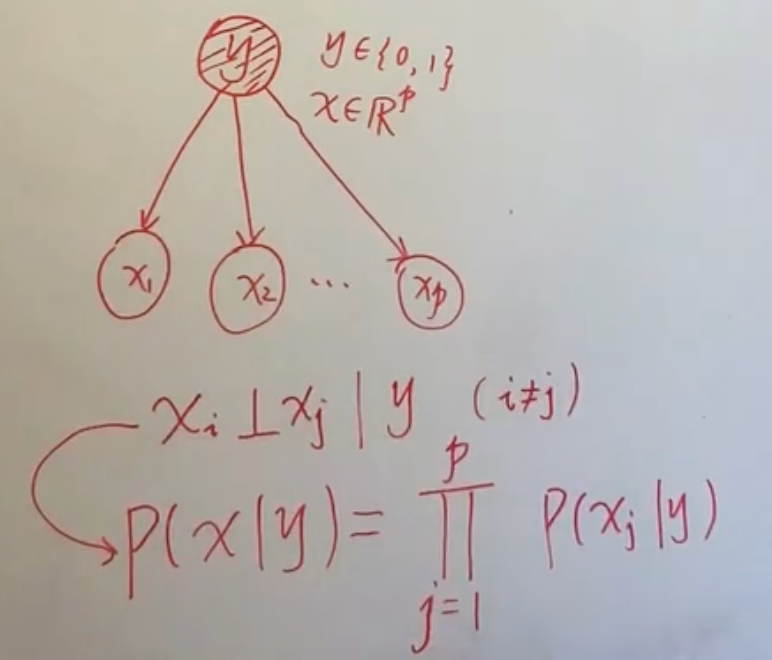 y
y ∈ {0, 1}
x ∈ ℝᵖ
x₁ x₂ ... xₚ
xᵢ ⊥ xⱼ | y (i≠j)
P(x|y) = ∏ⱼ₌₁ᵖ P(xⱼ|y)